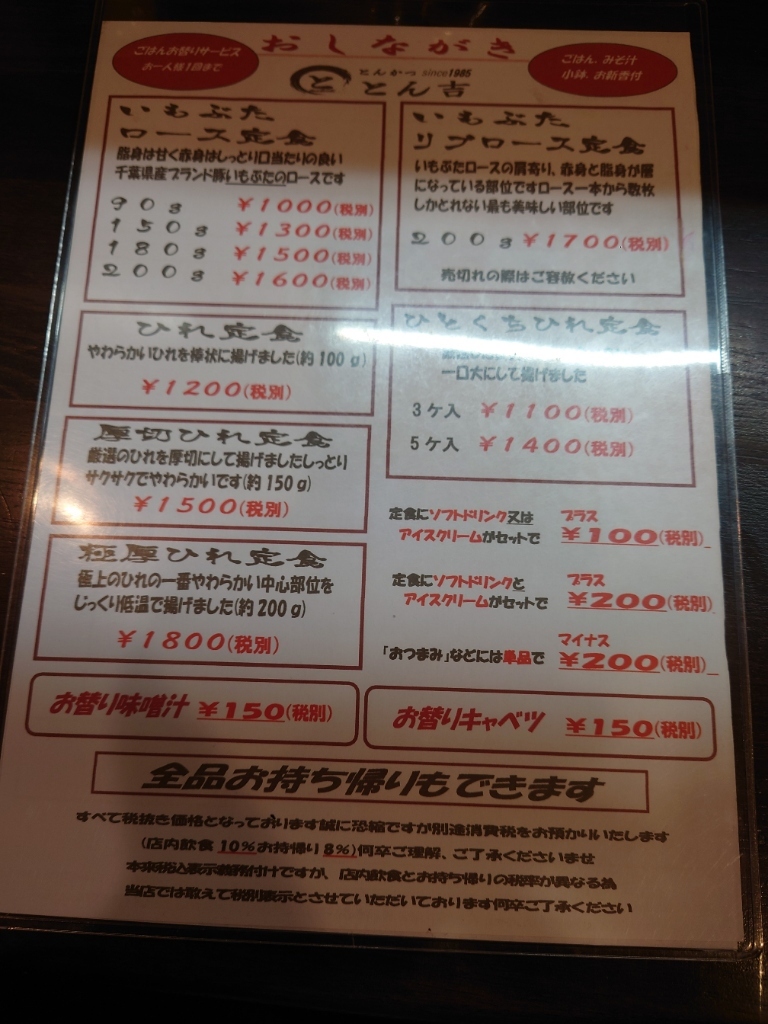 おしながき
ごはんお替りサービス
お一人様1回まで
ごはん、みそ汁
小鉢、お新香付
と
とんかつ since1985
とん吉
いもぶた
ロース定食
脂身は甘く赤身はしっとり口当たりの良い
千葉県産ブランド豚いもぶたのロースです
90g ¥1000(税別)
150g ¥1300(税別)
180g ¥1500(税別)
200g ¥1600(税別)
いもぶた
リブロース定食
いもぶたロースの肩寄り、赤身と脂身が層
になっている部位ですロース一本から数枚
しかとれない最も美味しい部位です
200g ¥1700(税別)
売切れの際はご容赦ください
ひれ定食
やわらかいひれを棒状に揚げました(約100g)
¥1200(税別)
ひとくちひれ定食
一口大にして揚げました
3ケ入 ¥1100(税別)
5ケ入 ¥1400(税別)
厚切ひれ定食
厳選のひれを厚切にして揚げましたしっとり
サクサクでやわらかいです(約150g)
¥1500(税別)
極厚ひれ定食
極上のひれの一番やわらかい中心部位を
じっくり低温で揚げました(約200g)
¥1800(税別)
定食にソフトドリンク又は プラス
アイスクリームがセットで ¥100(税別)
定食にソフトドリンクと プラス
アイスクリームがセットで ¥200(税別)
マイナス
「おつまみ」などには単品で ¥200(税別)
お替り味噌汁 ¥150(税別)
お替りキャベツ ¥150(税別)
全品お持ち帰りもできます
すべて税抜き価格となっております誠に恐縮ですが別途消費税をお預かりいたします
(店内飲食10%お持帰り8%)何卒ご理解、ご了承くださいませ
本来税込表示義務付けですが、店内飲食とお持ち帰りの税率が異なる為
当店では敢えて税別表示とさせていただいております何卒ご了承ください